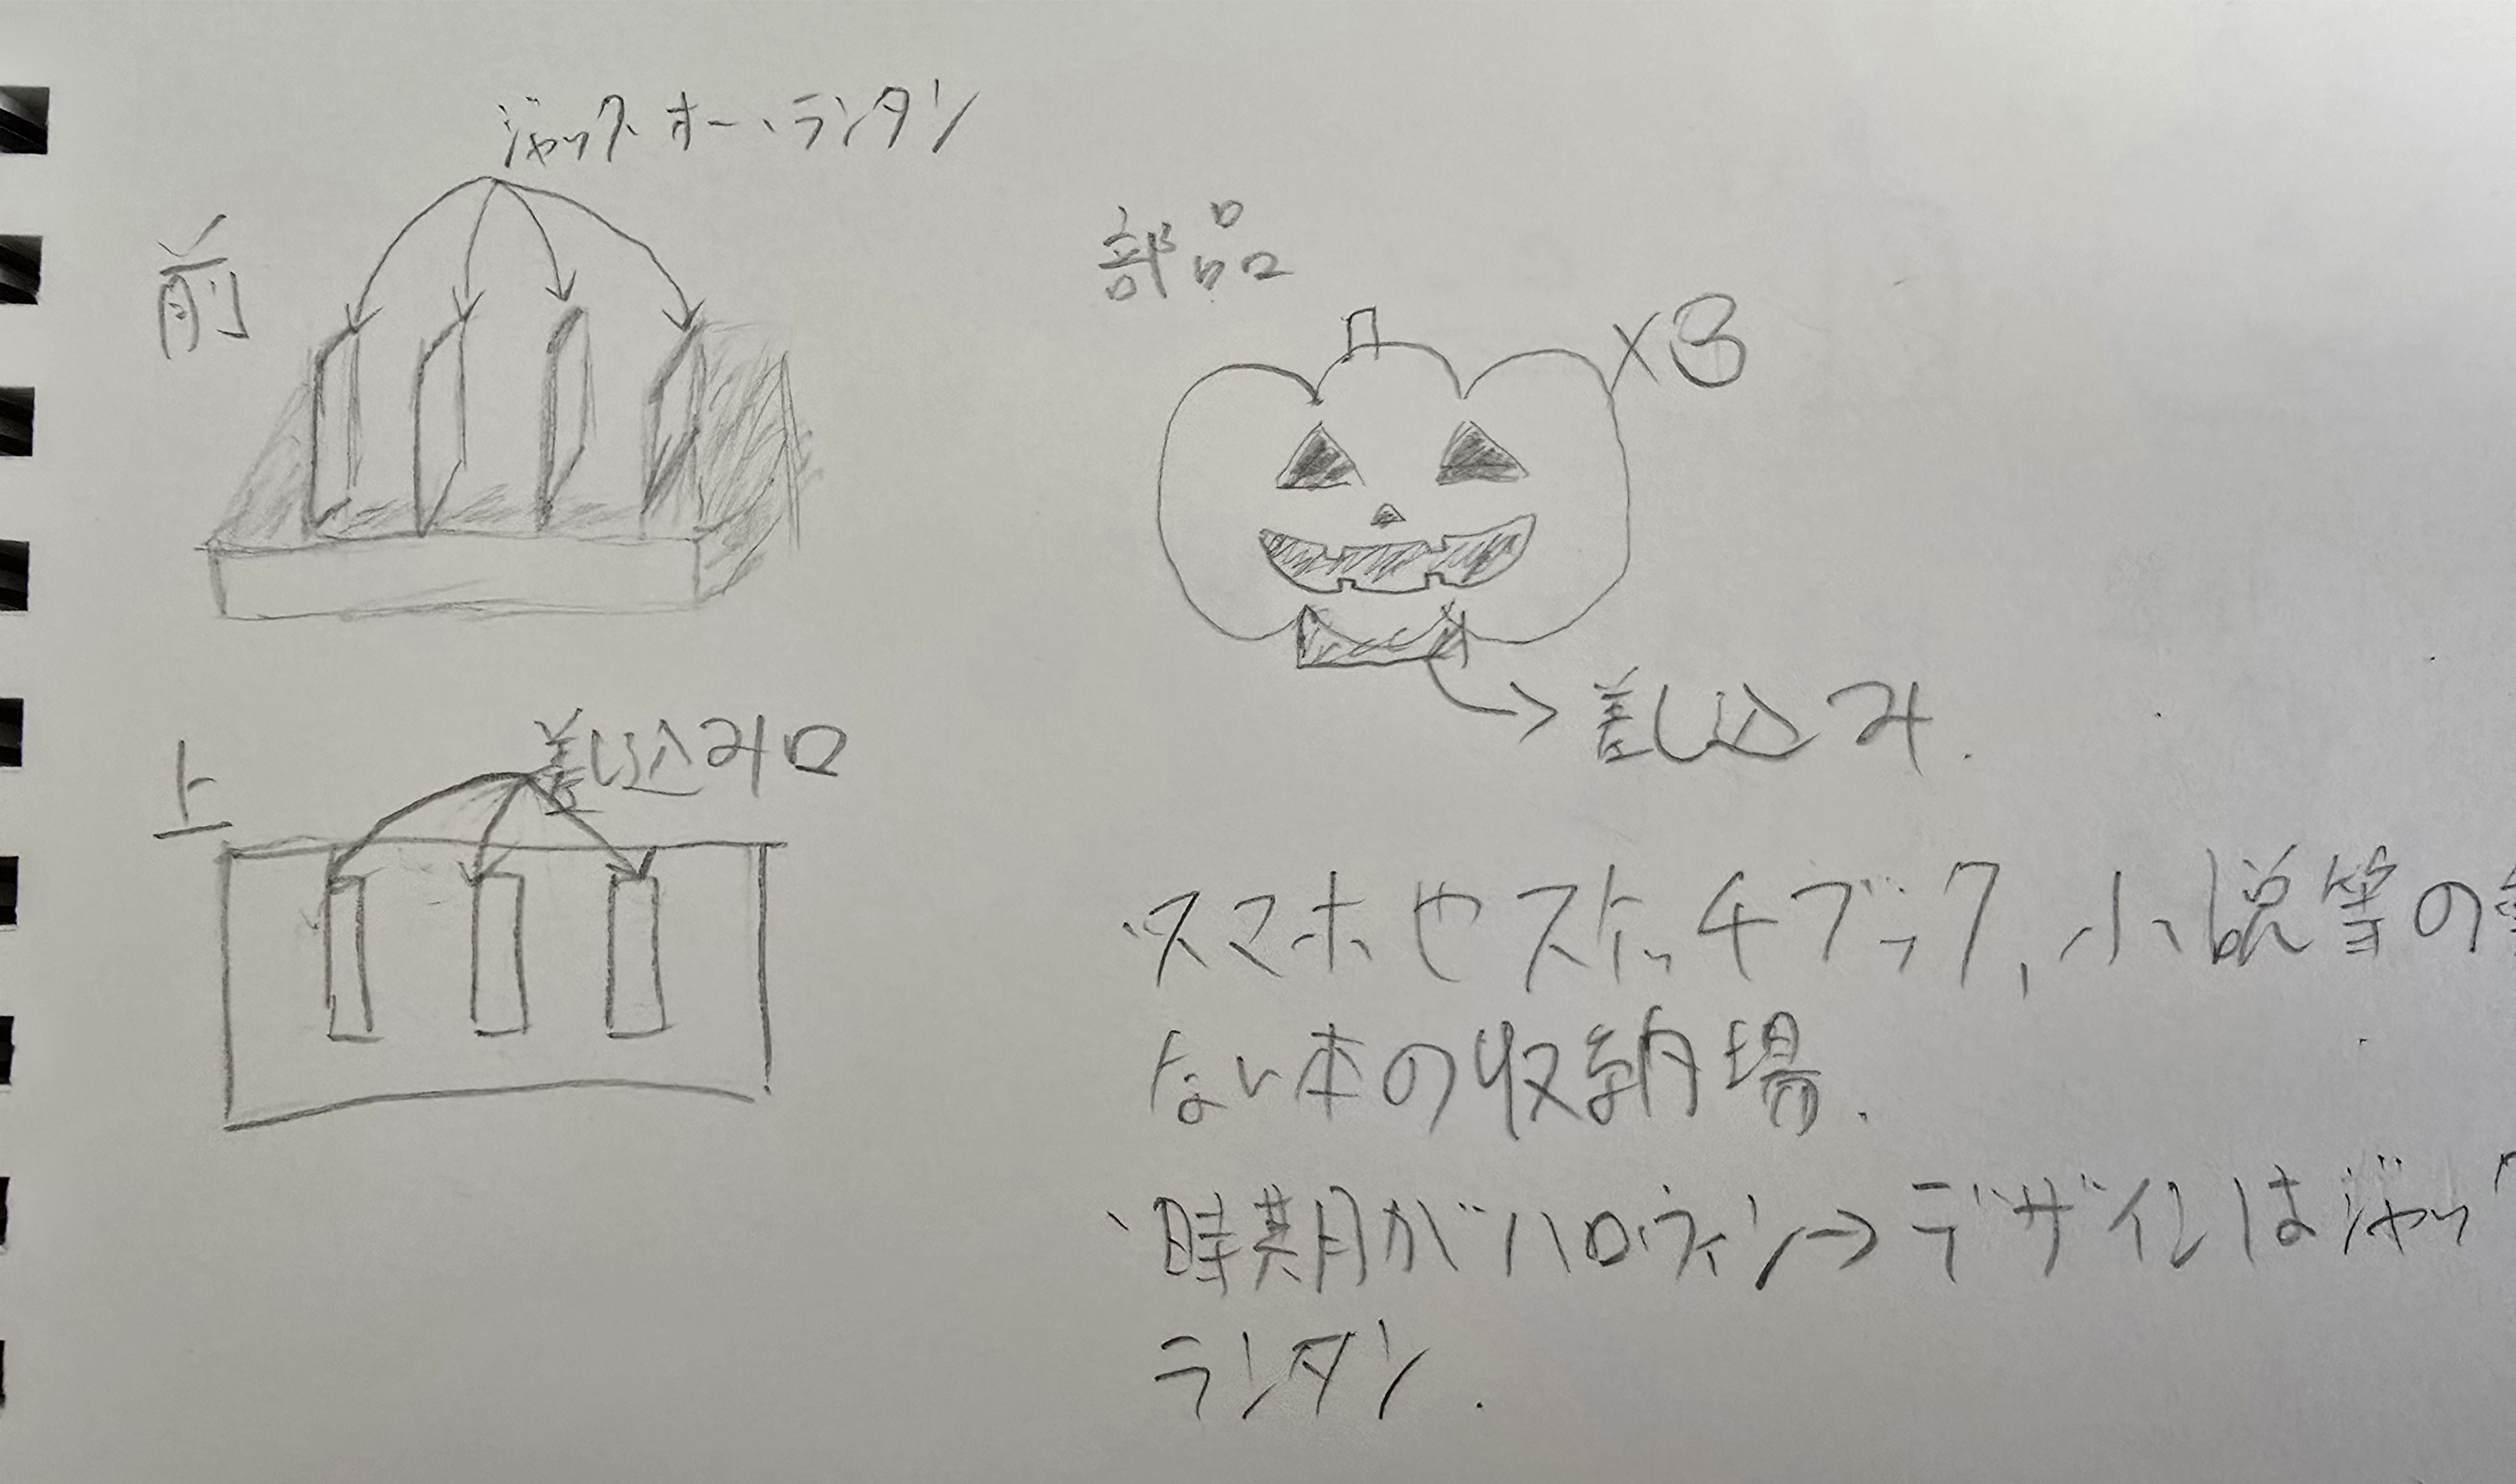 ジャックオー・ランタン
前
部品
×3
差し込み口
上
差し込み.
・スマホやスケッチブック、小説等の
ない本の収納場.
・時期がハロウィン→デザインはジャッ
ランタン.